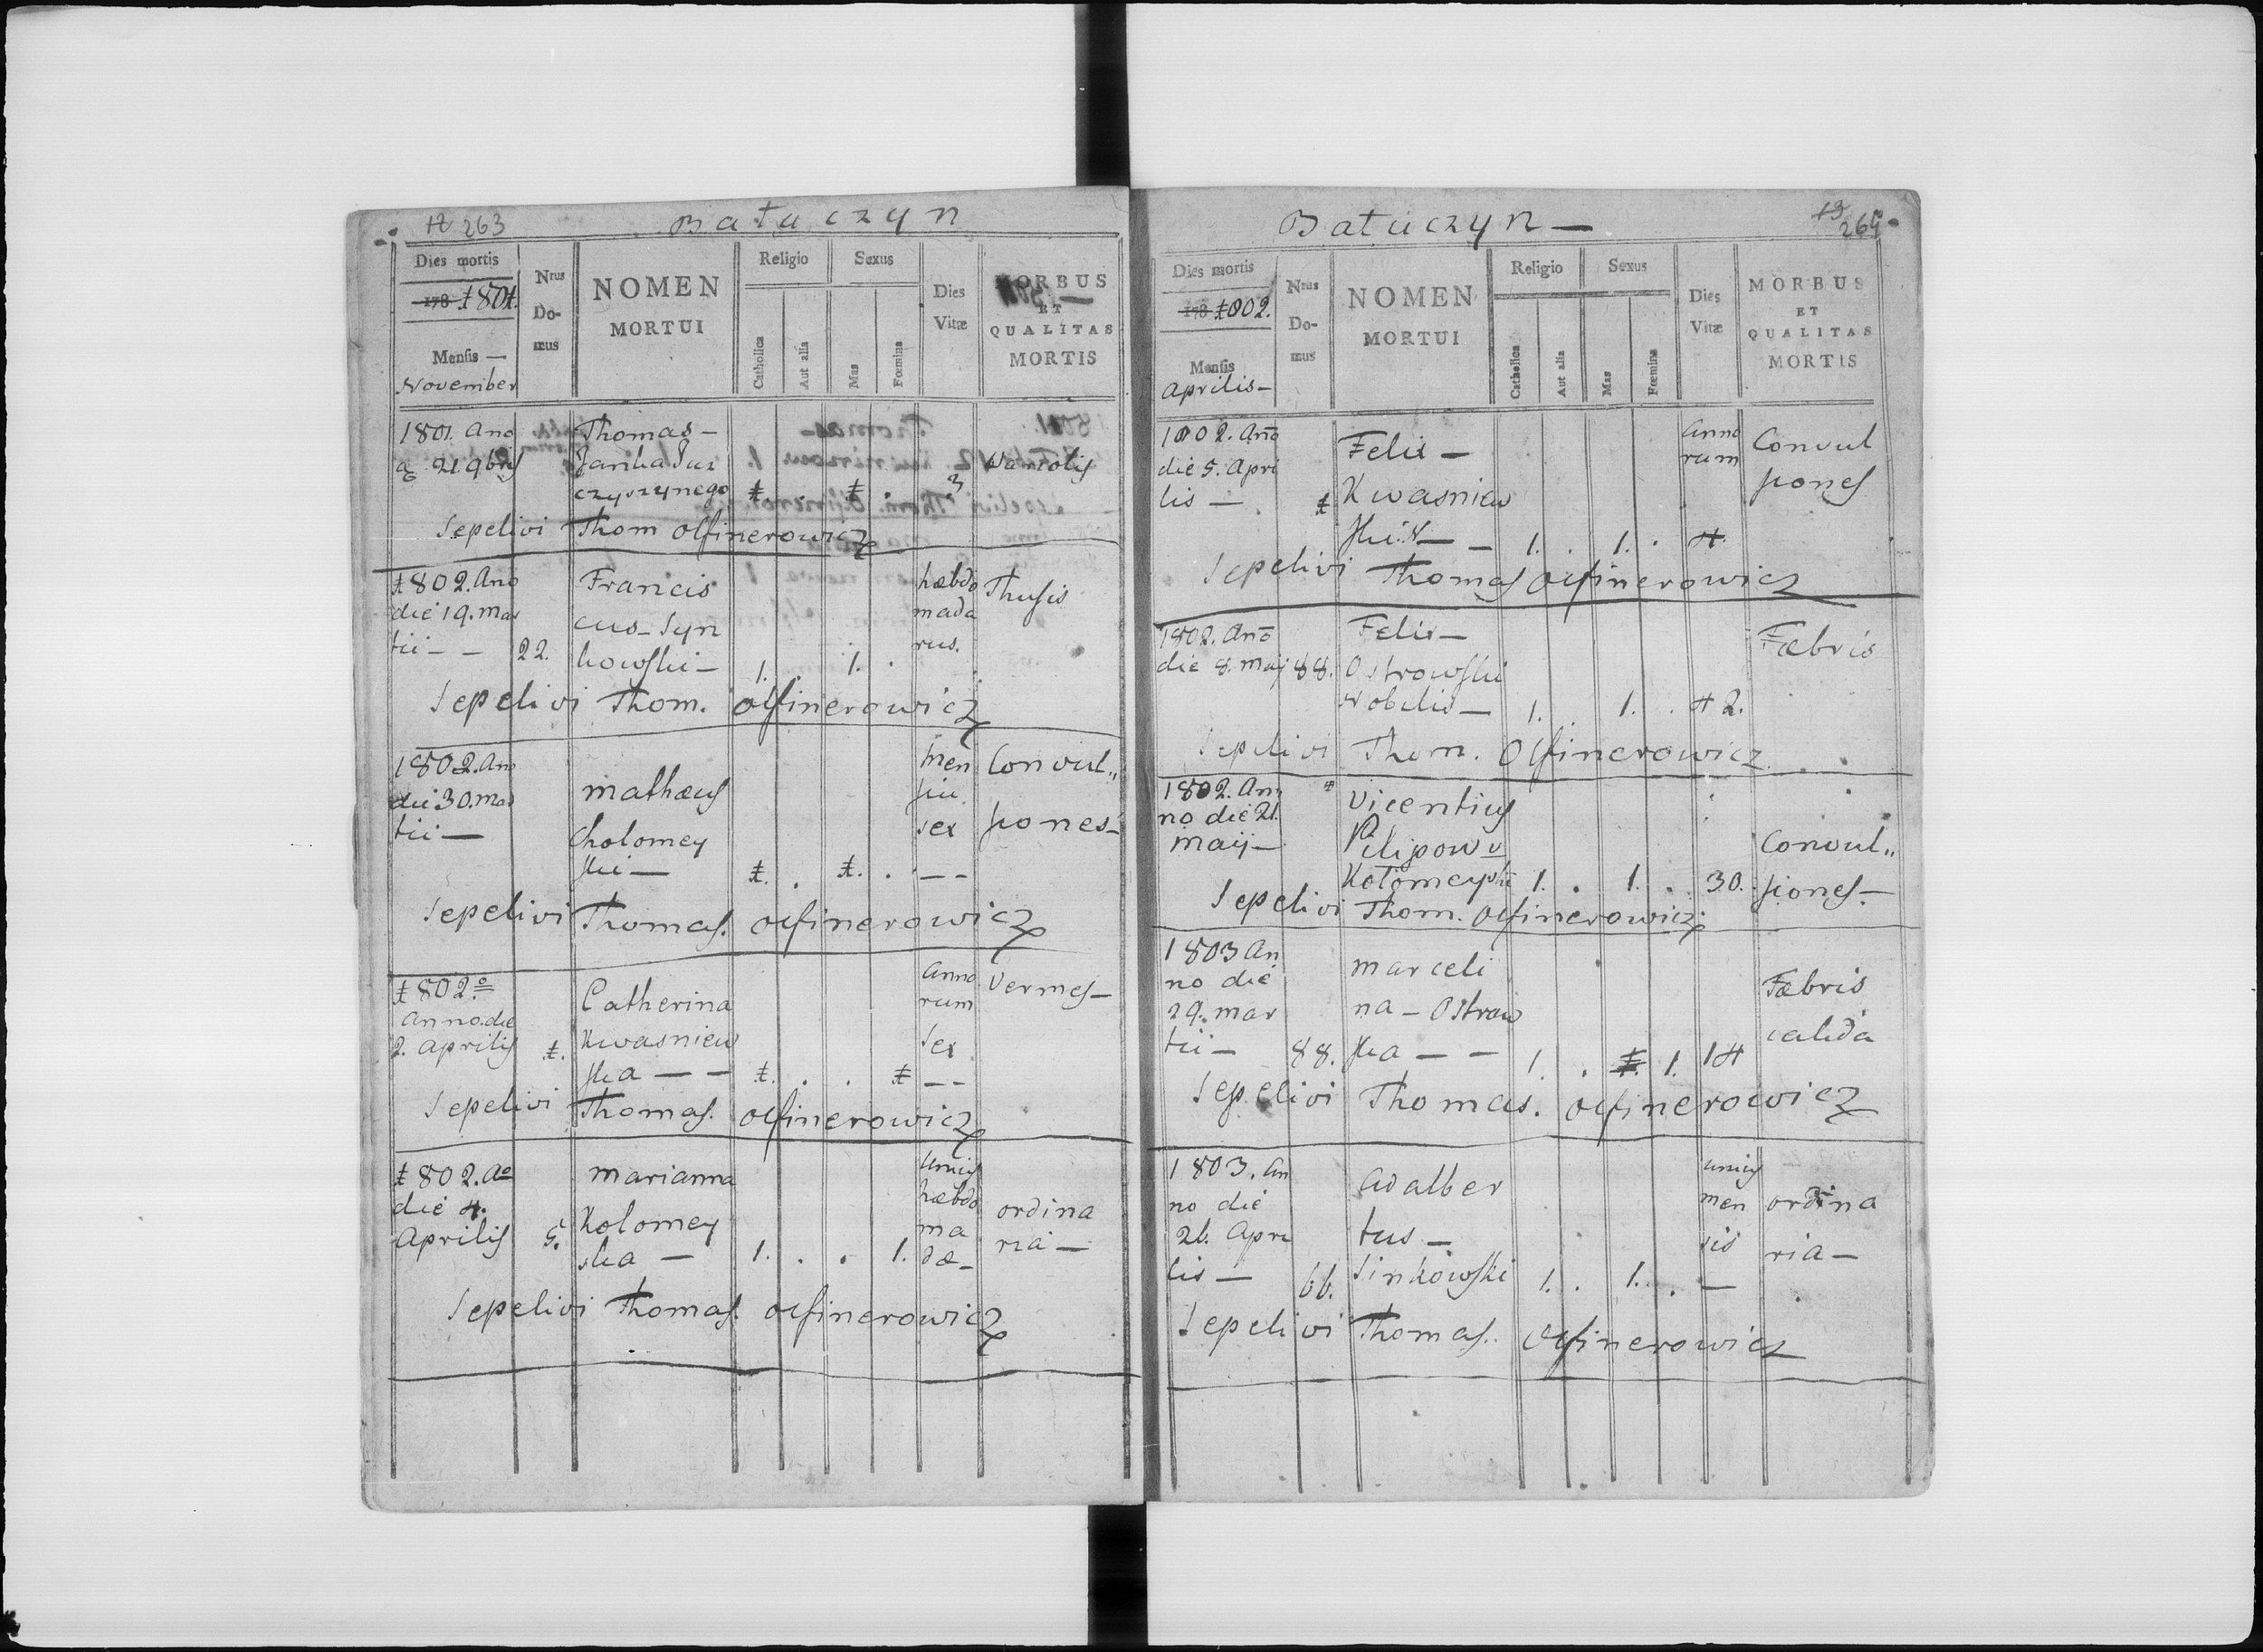 12 263
Batuczyn
Dies mortis
178 1801.
Mensis —
November
Nrus
Do-
mus
NOMEN
MORTUI
Religio
Catholica
Aut alia
Sexus
Mas
Fœmina
Dies
Vitæ
MORBUS
ET
QUALITAS
MORTIS
1801. Ano
21 9bris
Thomas —
czyszynego
1. . 1. . 3
Variolis
Sepelivi Thom Olfinerowicz
1802. Ano
die 19. mar
tii — — 22.
Francis
cus — Syn
kowski — 1. . 1. .
hæbdo
mada
rus.
Thusis
Sepelivi Thom. Olfinerowicz
1802. Ano
die 30. mar
tii —
mathæus
Cholomey
ski — 1. . 1. . — —
men
siu
sex
Convul„
siones —
Sepelivi Thomas. Olfinerowicz
1802o
Anno. die
2. Aprilis 1.
Catherina
Kwasniew
ska — — 1. . . 1 — —
Anno
rum
sex
Vermes —
Sepelivi Thomas. Olfinerowicz
1802. Ao
die 4.
Aprilis 5.
marianna
Kolomey
ska — 1. . . 1.
unius
hæbdo
ma
dæ —
ordina
ria —
Sepelivi Thomas. Olfinerowicz
13
264
Batuczyn —
Dies mortis
178 1802.
Mensis
Aprilis —
Nrus
Do-
mus
NOMEN
MORTUI
Religio
Catholica
Aut alia
Sexus
Mas
Fœmina
Dies
Vitæ
MORBUS
ET
QUALITAS
MORTIS
1802. Ano
die 5. Apri
lis — 1
Felix —
Kwasniew
ski — — 1. . 1. . 4.
Anno
rum
Convul
siones
Sepelivi Thomas Olfinerowicz
1802. Ano
die 8. maij 88.
Felix —
Ostrowski
Nobilis — 1. . 1. . 42.
Fæbris
Sepelivi Thom. Olfinerowicz
1802. An
no die 21.
maij —
Vicentius
Pilipow v
Kołomeyski 1. . 1. . 30.
Convul„
siones —
Sepelivi Thom. Olfinerowicz
1803 An
no die
29. mar
tii — 88.
marceli
na — Ostrow
ska — — 1. . 1. 1. 14
Fæbris
calida
Sepelivi Thomas. Olfinerowicz
1803. An
no die
26. Apri
lis — 66.
Adalber
tus —
Sinkowski 1. . 1. . —
unius
men
sis
ordina
ria —
Sepelivi Thomas. Olfinerowicz